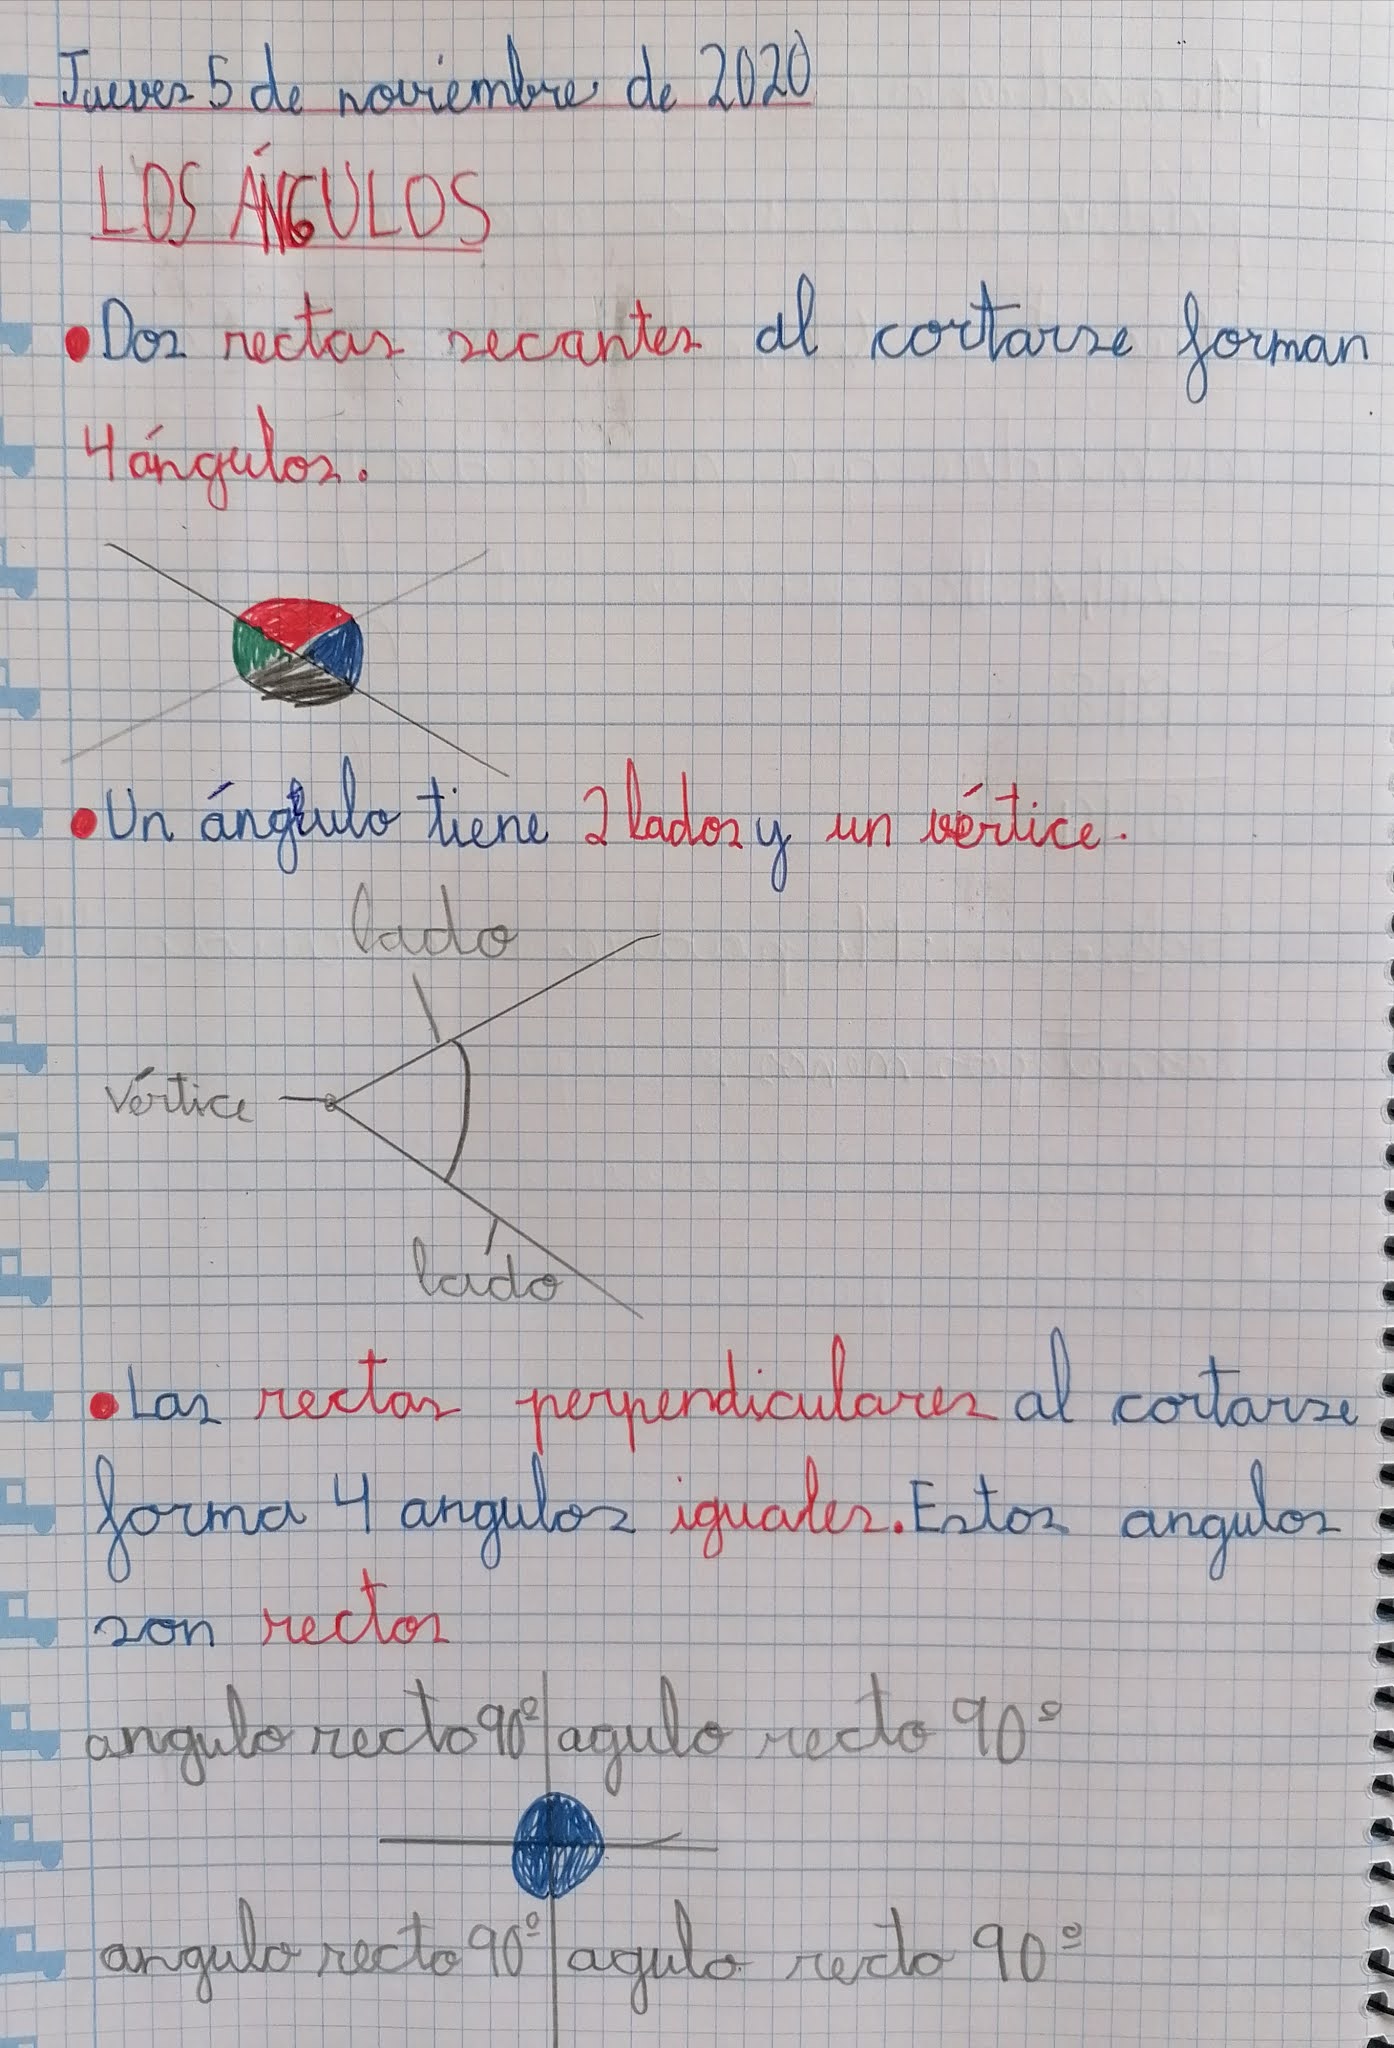 Jueves 5 de noviembre de 2020
LOS ÁNGULOS
•Dos rectas secantes al cortarse forman
4 ángulos.
•Un ángulo tiene 2 lados y un vértice.
lado
vértice
lado
•Las rectas perpendiculares al cortarse
forma 4 angulos iguales. Estos angulos
son rectos
angulo recto 90º agulo recto 90º
angulo recto 90º agulo recto 90º